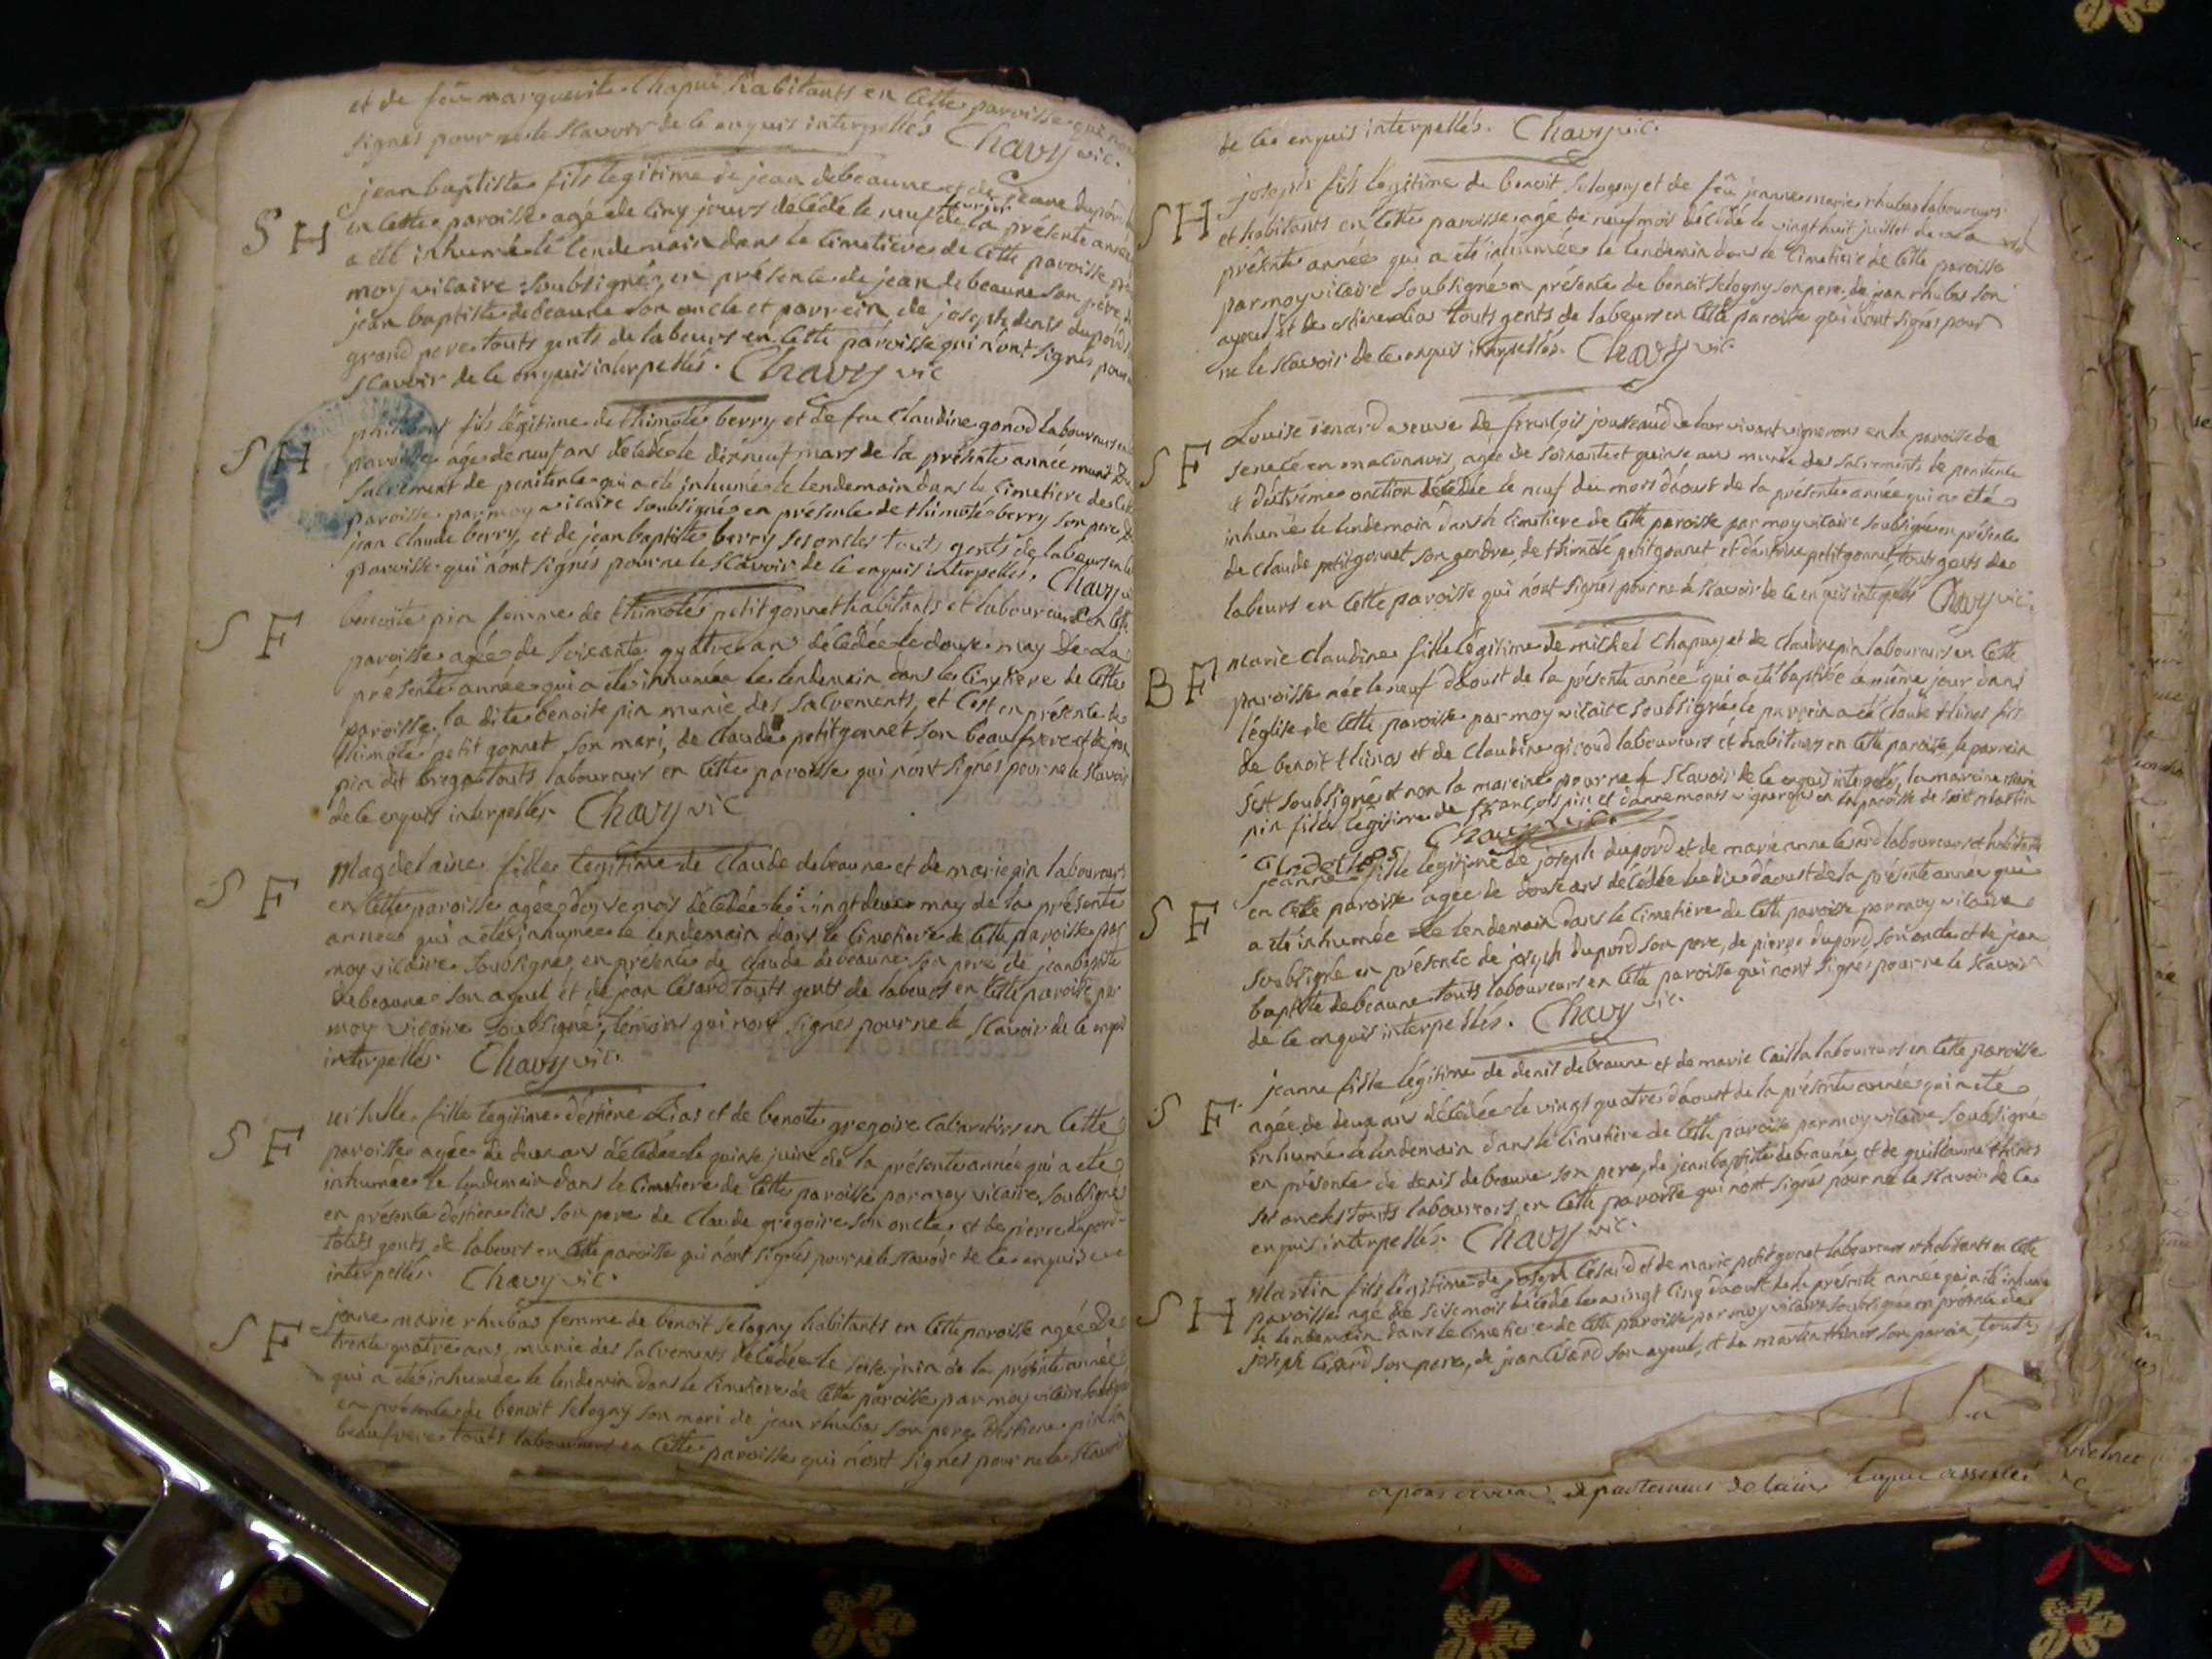 et de feû marguerite Chapui habitants en Cette paroisse qui n
signés pour ne le sçavoir de Ce enquis interpellés Chavy vic.
jean baptiste fils légitime de jean debeaune et de jeane dupor
S H
en Cette paroisse agé de Cinq jours décédé le neuf fevrier de la présente année
a été inhumé le lendemain dans le Cimetiere de Cette paroisse
moy vicaire soubsigné, en présence de jean debeaune son père
jean baptiste debeaune son oncle et parrein de joseph denis dupord
grand pere touts gents de labeurs en Cette paroisse qui n'ont signés pour
sçavoir de Ce enquis interpellés. Chavy vic
fils légitime de thimoté berry et de feu Claudine gonod laboureurs
S H
paroisse agé de neuf ans décédé le dix neuf mars de la présente année muni du
sacrement de penitence qui a été inhumé le lendemain dans le Cimetiere de
paroisse par moy vicaire soubsigné en présence de thimoté berry son pere
jean Claude berry, et de jean baptiste berry ses oncles touts gents de labeurs en
paroisse qui n'ont signés pour ne le sçavoir de Ce enquis interpellés. Chavy
S F
benoite pin femme de thimoté petit gonnet habitants et laboureurs en
paroisse agée de soixante quattre ans décédée le douse may de La
présente année qui a été inhumée le lendemain dans le Cimetiere de Cette
paroisse, la dite benoite pin munie des sacrements, et C'est en présence de
thimoté petit gonnet son mari, de Claude petit gonnet son beaufrere et de
pin dit brega touts laboureurs en Cette paroisse qui n'ont signés pour ne le sçavoir
de Ce enquis interpellés Chavy vic
S F
Magdelaine fille légitime de Claude debeaune et de marie pin laboureurs
en Cette paroisse agée de mois décédée le vingt deux may de la présente
année qui a été inhumée le lendemain dans le Cimetiere de Cette paroisse par
moy vicaire soubsigné, en présence de Claude debeaune son pere de jean baptiste
debeaune son ayeul et de jean Cesard touts gents de labeurs en Cette paroisse par
moy vicaire soubsigné, témoins qui n'ont signés pour ne le sçavoir de Ce enquis
interpellés. Chavy vic.
S F
fille légitime d'éstiene Lias et de benoite gregoire en Cette
paroisse agée de deux ans décédée le quinse juin de la présente année qui a été
inhumée le lendemain dans le Cimetiere de Cette paroisse par moy vicaire soubsigné
en présence d'éstiene lias son pere de Claude gregoire son oncle et de pierre dupord
touts gents de labeurs en Cette paroisse qui n'ont signés pour ne le sçavoir de Ce enquis
interpellés. Chavy vic.
S F
jeane marie rhubas femme de benoit selogny habitants en Cette paroisse agée de
trente quatre ans, munie des sacrements décédée le seise juin de la présente année
qui a été inhumée le lendemain dans le Cimetiere de Cette paroisse par moy vicaire
en présence de benoit selogny son mari de jean rhubas son pere d'éstiene
beaufrere touts laboureurs en Cette paroisse qui n'ont signés pour ne le sçavoir
de Ce enquis interpellés. Chavy vic.
S H
joseph fils légitime de benoit selogny et de feû jeanne marie rhubas laboureurs
et habitants en Cette paroisse agé de neuf mois décédé le vingt huit juillet de la
présente année qui a été inhumée le lendemain dans le Cimetiere de Cette paroisse
par moy vicaire soubsigné en présence de benoit selogny son pere, de jean rhubas son
ayeul, et de estiene lias touts gents de labeurs en Cette paroisse qui n'ont signés pour
ne le sçavoir de Ce enquis interpellés. Chavy vic.
S F
Louise veuve de françois de leur vivant vignerons en la paroisse de
en maconnois, agée de soixante et quinse ans munie des sacrements de penitence
et d'éxtrême onction décédée le neuf du mois d'aoust de la présente année qui a été
inhumée le lendemain dans le Cimetiere de Cette paroisse par moy vicaire soubsigné en présence
de Claude petit gonnet son gendre, de thimoté petit gonnet et petit gonnet, touts gents de
labeurs en Cette paroisse qui n'ont signés pour ne le sçavoir de Ce enquis interpellés Chavy vic.
B F
marie Claudine fille légitime de michel Chapuy et de pin laboureurs en Cette
paroisse née le neuf d'aoust de la présente année qui a été baptisée le même jour dans
l'église de Cette paroisse par moy vicaire soubsigné le parrein a été Claude thinos fils
de benoit thinos et de Claudine giroud laboureurs et habitants en Cette paroisse, le parrein
s'est soubsigné et non la mareine pour ne le sçavoir de Ce enquis interpellés, la mareine marie
pin fille légitime de françois pin et d'anne vignerons en la paroisse de saint martin
Chavy vic.
S F
jeanne fille légitime de joseph dupord et de marie anne Cesard laboureurs et habitants
en Cette paroisse agée de douse ans décédée le dix d'aoust de la présente année qui
a été inhumée le lendemain dans le Cimetiere de Cette paroisse par moy vicaire
soubsigné en présence de joseph dupord son pere, de pierre dupord son oncle et de jean
baptiste debeaune touts laboureurs en Cette paroisse qui n'ont signés pour ne le sçavoir
de Ce enquis interpellés. Chavy vic.
S F
jeanne fille légitime de denis debeaune et de marie laboureurs en Cette paroisse
agée de deux ans décédée le vingt quatre d'aoust de la présente année qui a été
inhumée le lendemain dans le Cimetiere de Cette paroisse par moy vicaire soubsigné
en présence de denis debeaune son pere, de jean baptiste debeaune, et de guillaume thinos
ses oncles touts laboureurs en Cette paroisse qui n'ont signés pour ne le sçavoir de Ce
enquis interpellés. Chavy vic.
S H
Martin fils légitime de joseph Cesard et de marie petit gonet laboureurs et habitants en Cette
paroisse agé de seise mois décédé le vingt cinq d'aoust de la présente année qui a été inhumé
le lendemain dans le Cimetiere de Cette paroisse par moy vicaire soubsigné en présence de
joseph Cesard son pere, de jean Cesard son ayeul, et de martin thinos son parein, touts
departement de lain